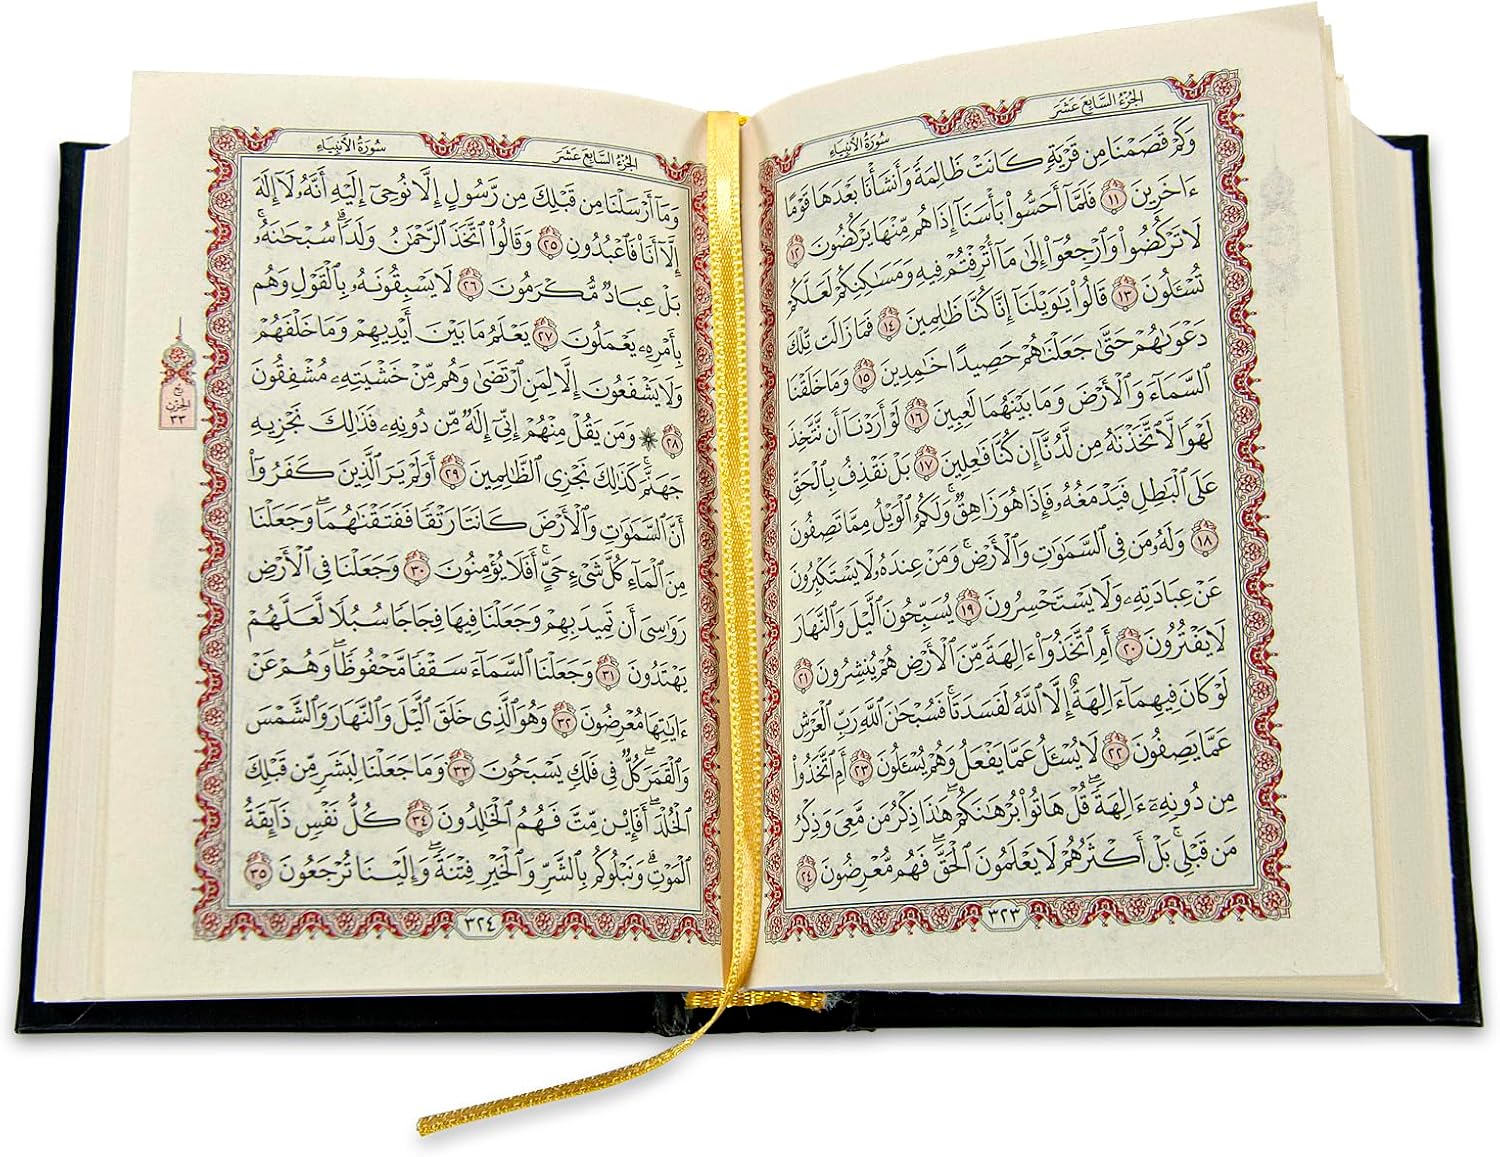 سُورَةُ الأَنبِيَاءِ
الجُزْءُ السَّابِعَ عَشَرَ
وَكَمْ قَصَمْنَا مِن قَرْيَةٍ كَانَتْ ظَالِمَةً وَأَنشَأْنَا بَعْدَهَا قَوْمًا
ءَاخَرِينَ ١١ فَلَمَّآ أَحَسُّوا۟ بَأْسَنَآ إِذَا هُم مِّنْهَا يَرْكُضُونَ ١٢
لَا تَرْكُضُوا۟ وَٱرْجِعُوٓا۟ إِلَىٰ مَآ أُتْرِفْتُمْ فِيهِ وَمَسَٰكِنِكُمْ لَعَلَّكُمْ
تُسْـَٔلُونَ ١٣ قَالُوا۟ يَٰوَيْلَنَآ إِنَّا كُنَّا ظَٰلِمِينَ ١٤ فَمَا زَالَت تِّلْكَ
دَعْوَىٰهُمْ حَتَّىٰ جَعَلْنَٰهُمْ حَصِيدًا خَٰمِدِينَ ١٥ وَمَا خَلَقْنَا
ٱلسَّمَآءَ وَٱلْأَرْضَ وَمَا بَيْنَهُمَا لَٰعِبِينَ ١٦ لَوْ أَرَدْنَآ أَن نَّتَّخِذَ
لَهْوًا لَّٱتَّخَذْنَٰهُ مِن لَّدُنَّآ إِن كُنَّا فَٰعِلِينَ ١٧ بَلْ نَقْذِفُ بِٱلْحَقِّ
عَلَى ٱلْبَٰطِلِ فَيَدْمَغُهُۥ فَإِذَا هُوَ زَاهِقٌ ۚ وَلَكُمُ ٱلْوَيْلُ مِمَّا تَصِفُونَ
١٨ وَلَهُۥ مَن فِى ٱلسَّمَٰوَٰتِ وَٱلْأَرْضِ ۚ وَمَنْ عِندَهُۥ لَا يَسْتَكْبِرُونَ
عَنْ عِبَادَتِهِۦ وَلَا يَسْتَحْسِرُونَ ١٩ يُسَبِّحُونَ ٱلَّيْلَ وَٱلنَّهَارَ
لَا يَفْتُرُونَ ٢٠ أَمِ ٱتَّخَذُوٓا۟ ءَالِهَةً مِّنَ ٱلْأَرْضِ هُمْ يُنشِرُونَ ٢١
لَوْ كَانَ فِيهِمَآ ءَالِهَةٌ إِلَّا ٱللَّهُ لَفَسَدَتَا ۚ فَسُبْحَٰنَ ٱللَّهِ رَبِّ ٱلْعَرْشِ
عَمَّا يَصِفُونَ ٢٢ لَا يُسْـَٔلُ عَمَّا يَفْعَلُ وَهُمْ يُسْـَٔلُونَ ٢٣ أَمِ ٱتَّخَذُوا۟
مِن دُونِهِۦٓ ءَالِهَةً ۖ قُلْ هَاتُوا۟ بُرْهَٰنَكُمْ ۖ هَٰذَا ذِكْرُ مَن مَّعِىَ وَذِكْرُ
مَن قَبْلِى ۗ بَلْ أَكْثَرُهُمْ لَا يَعْلَمُونَ ٱلْحَقَّ ۖ فَهُم مُّعْرِضُونَ ٢٤
٣٢٣
الجُزْءُ السَّابِعَ عَشَرَ
سُورَةُ الأَنبِيَاءِ
وَمَآ أَرْسَلْنَا مِن قَبْلِكَ مِن رَّسُولٍ إِلَّا نُوحِىٓ إِلَيْهِ أَنَّهُۥ لَآ إِلَٰهَ
إِلَّآ أَنَا۠ فَٱعْبُدُونِ ٢٥ وَقَالُوا۟ ٱتَّخَذَ ٱلرَّحْمَٰنُ وَلَدًا ۗ سُبْحَٰنَهُۥ ۚ
بَلْ عِبَادٌ مُّكْرَمُونَ ٢٦ لَا يَسْبِقُونَهُۥ بِٱلْقَوْلِ وَهُم
بِأَمْرِهِۦ يَعْمَلُونَ ٢٧ يَعْلَمُ مَا بَيْنَ أَيْدِيهِمْ وَمَا خَلْفَهُمْ
وَلَا يَشْفَعُونَ إِلَّا لِمَنِ ٱرْتَضَىٰ وَهُم مِّنْ خَشْيَتِهِۦ مُشْفِقُونَ
٢٨ ۞ وَمَن يَقُلْ مِنْهُمْ إِنِّىٓ إِلَٰهٌ مِّن دُونِهِۦ فَذَٰلِكَ نَجْزِيهِ
جَهَنَّمَ ۚ كَذَٰلِكَ نَجْزِى ٱلظَّٰلِمِينَ ٢٩ أَوَلَمْ يَرَ ٱلَّذِينَ كَفَرُوٓا۟
أَنَّ ٱلسَّمَٰوَٰتِ وَٱلْأَرْضَ كَانَتَا رَتْقًا فَفَتَقْنَٰهُمَا ۖ وَجَعَلْنَا
مِنَ ٱلْمَآءِ كُلَّ شَىْءٍ حَىٍّ ۖ أَفَلَا يُؤْمِنُونَ ٣٠ وَجَعَلْنَا فِى ٱلْأَرْضِ
رَوَٰسِىَ أَن تَمِيدَ بِهِمْ وَجَعَلْنَا فِيهَا فِجَاجًا سُبُلًا لَّعَلَّهُمْ
يَهْتَدُونَ ٣١ وَجَعَلْنَا ٱلسَّمَآءَ سَقْفًا مَّحْفُوظًا ۖ وَهُمْ عَنْ
ءَايَٰتِهَا مُعْرِضُونَ ٣٢ وَهُوَ ٱلَّذِى خَلَقَ ٱلَّيْلَ وَٱلنَّهَارَ وَٱلشَّمْسَ
وَٱلْقَمَرَ ۖ كُلٌّ فِى فَلَكٍ يَسْبَحُونَ ٣٣ وَمَا جَعَلْنَا لِبَشَرٍ مِّن قَبْلِكَ
ٱلْخُلْدَ ۖ أَفَإِي۟ن مِّتَّ فَهُمُ ٱلْخَٰلِدُونَ ٣٤ كُلُّ نَفْسٍ ذَآئِقَةُ
ٱلْمَوْتِ ۗ وَنَبْلُوكُم بِٱلشَّرِّ وَٱلْخَيْرِ فِتْنَةً ۖ وَإِلَيْنَا تُرْجَعُونَ ٣٥
٣٢٤
الحزب
٣٣